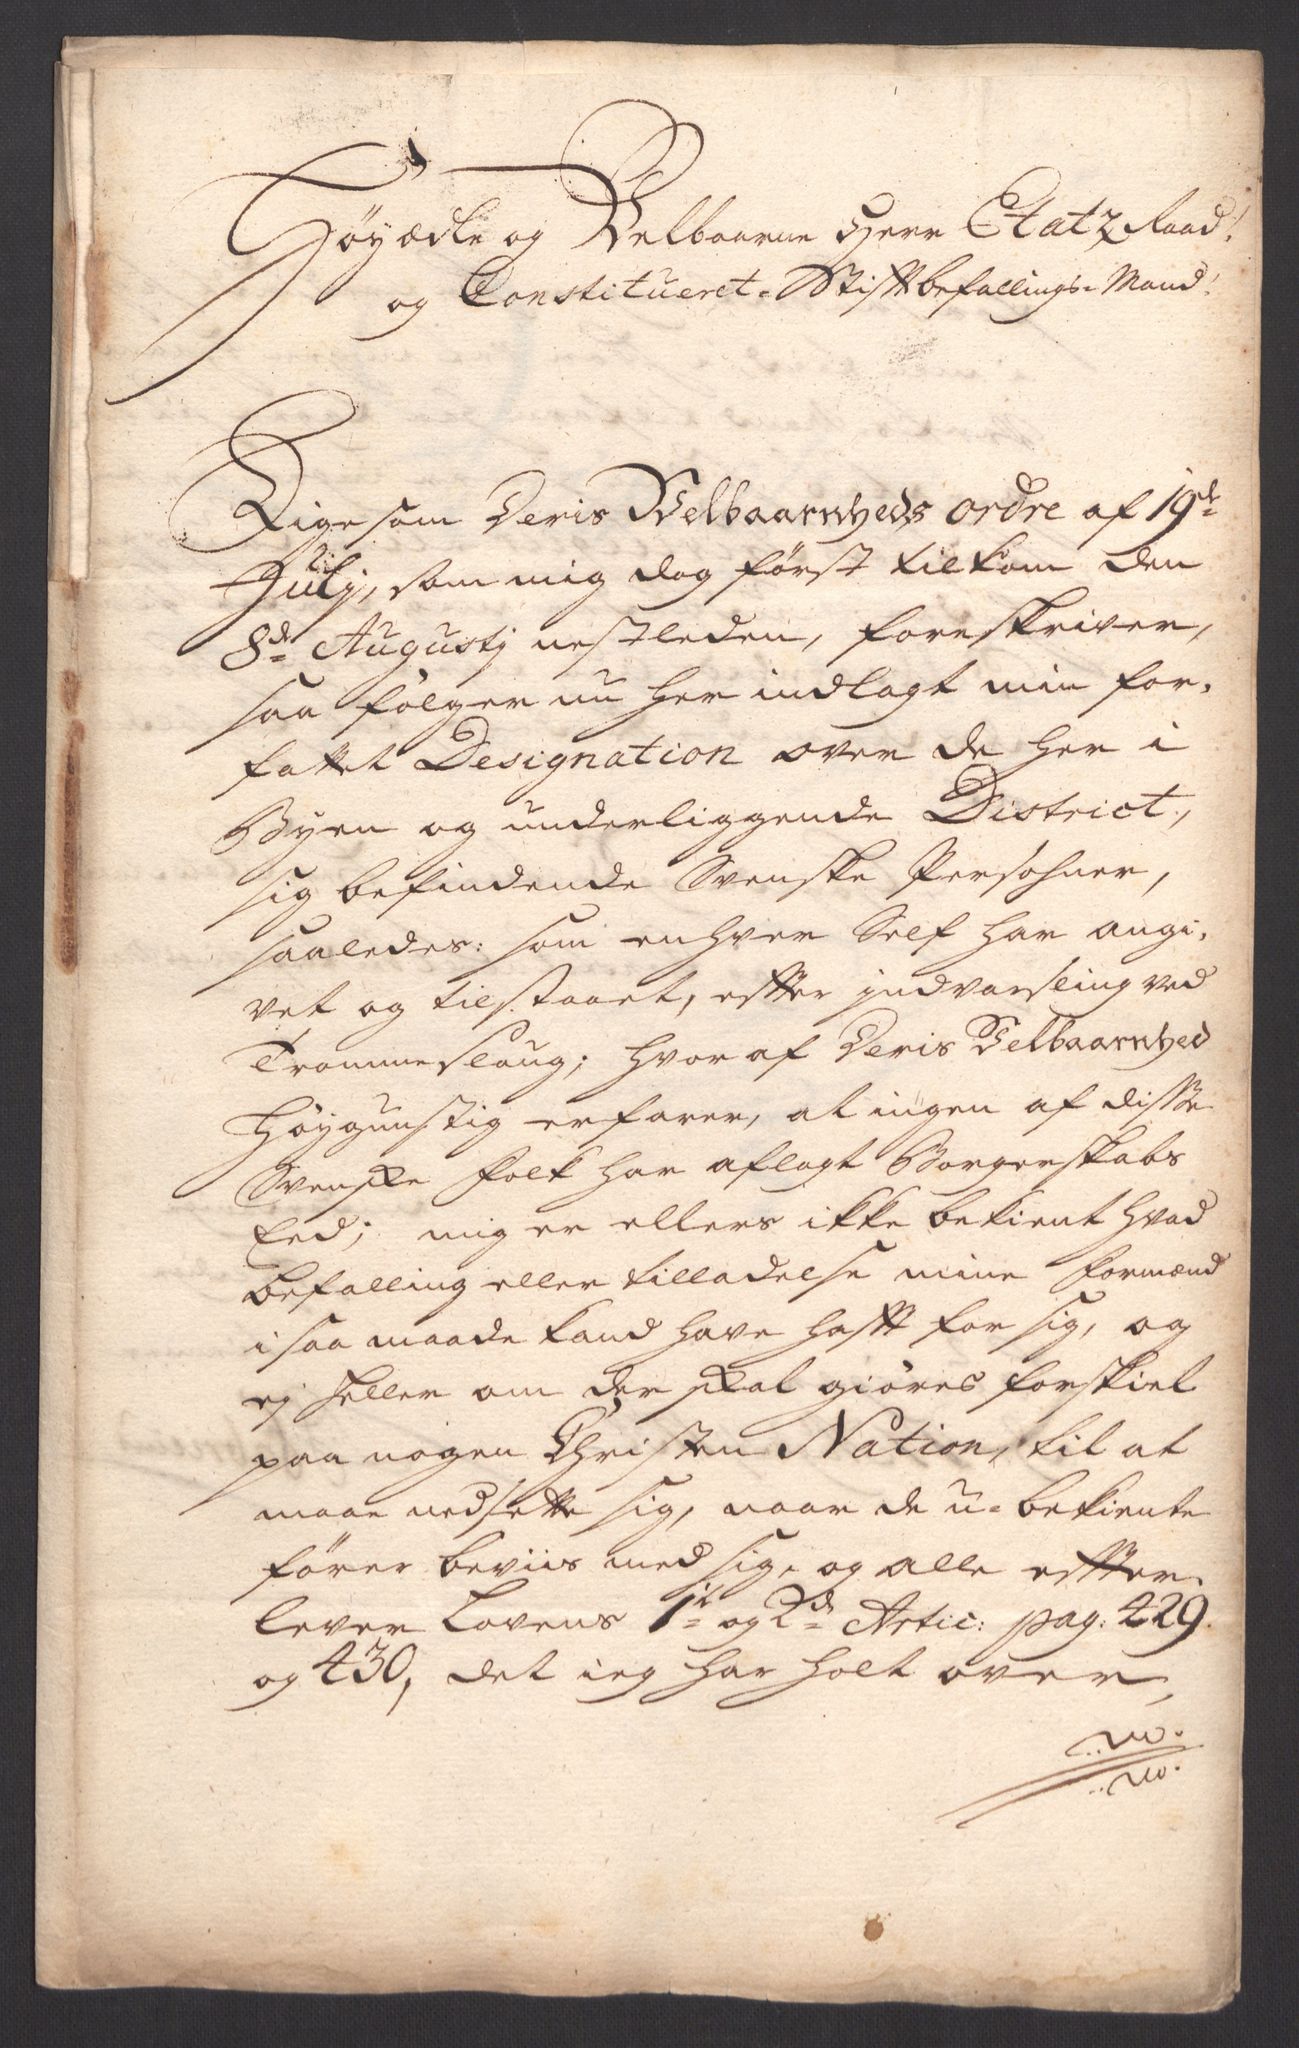 Høyædle og Velbaarne Herr Etatz Raad!
og Constitueret-Stiftbefallings-Mand!
Ligesom Deris Velbaarnheds ordre af 19de
July, som mig dog først tilkom den
8de Augustj nestleden, foreskriver,
saa følger nu her indlagt min for-
fattet Designation over de her i
Byen og underliggende District,
sig befindende Svenske Persohner,
saaledes: som enhver Self har angi-
vet og tilstaaet, effter jndvarsling ved
Trommeslaug; hvoraf Deris Velbaarnhed
Høygunstig erfarer, at ingen af disse
Svenske folk har aflagt Borgerskabs
Eed; mig er ellers ikke bekient hvad
befalling eller tilladelse mine formænd
i saa maade kand have hafft for sig, og
ej heller om der skal giøres forskiel
paa nogen Christen Nation, til at
maae nedsette sig, naar de u-bekiente
fører beviis med sig, og alle effter-
lever Lovens 1te og 2de Artic: pag: 429.
og 430, det ieg har holt over,